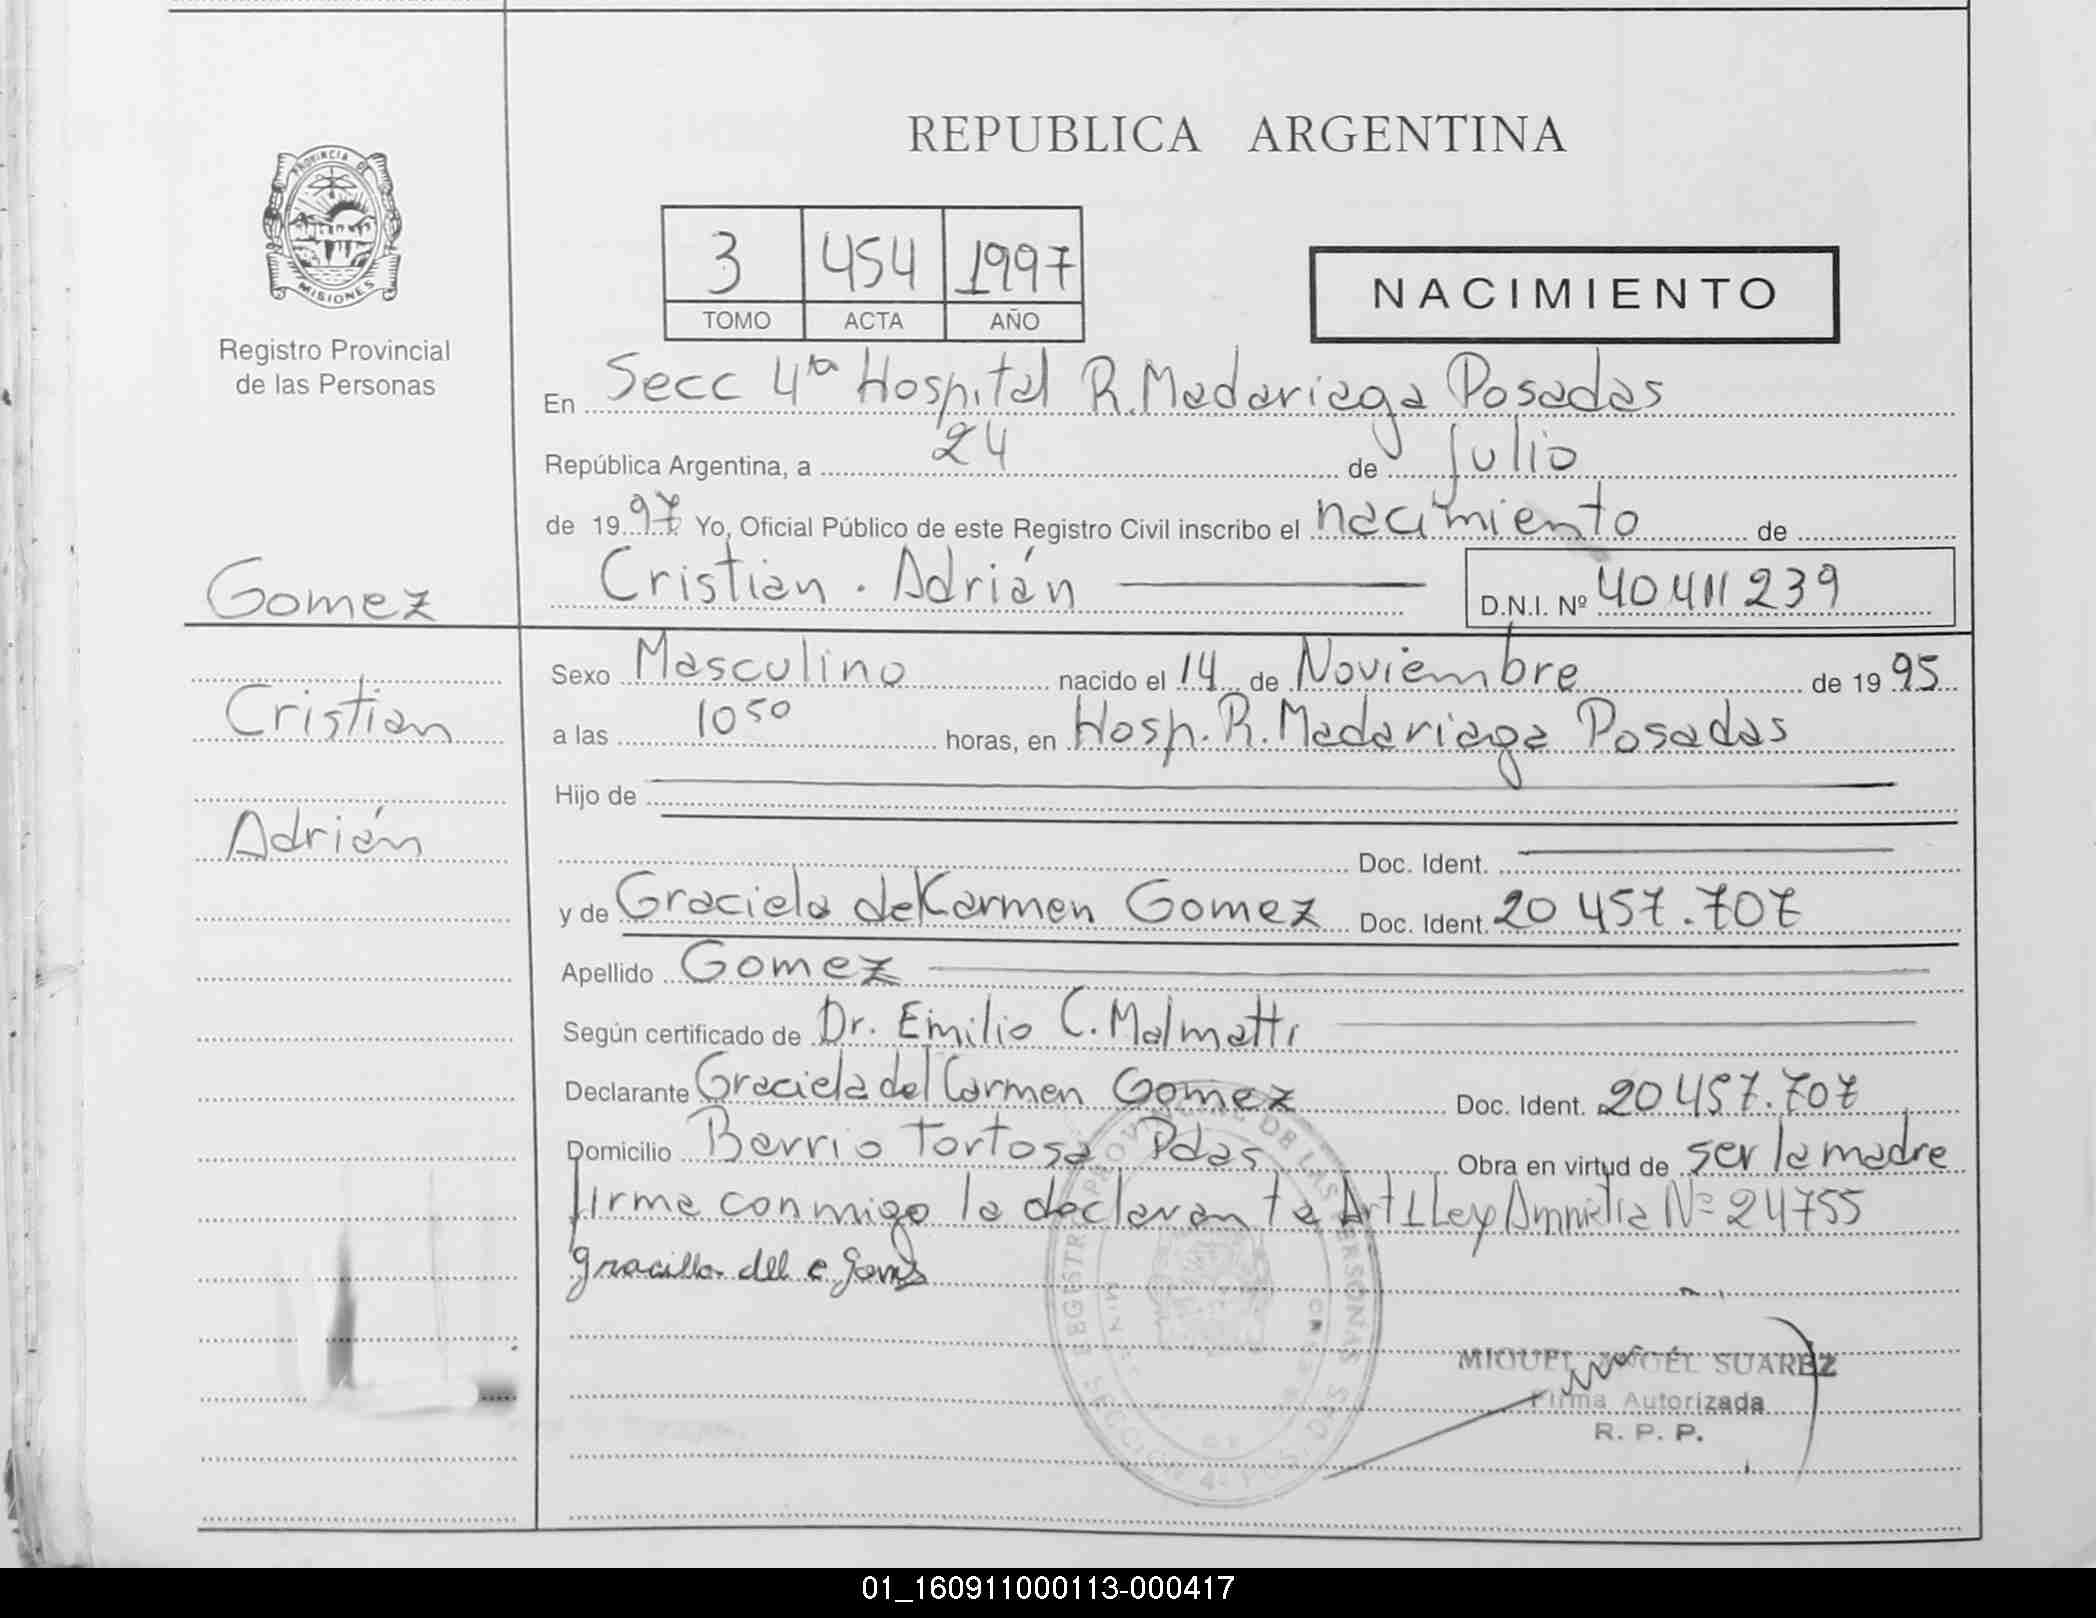 REPUBLICA ARGENTINA
PROVINCIA DE
MISIONES
Registro Provincial
de las Personas
3 454 1997
TOMO ACTA AÑO
NACIMIENTO
En Secc 4ta Hospital R. Madariaga Posadas
República Argentina, a 24 de Julio
de 1997 Yo, Oficial Público de este Registro Civil inscribo el nacimiento de
Cristian. Adrián D.N.I. Nº 40 411 239
Gomez
Cristian
Adrián
Sexo Masculino nacido el 14 de Noviembre de 1995
a las 10 50 horas, en Hosp. R. Madariaga Posadas
Hijo de
Doc. Ident.
y de Graciela del Karmen Gomez Doc. Ident. 20 457.707
Apellido Gomez
Según certificado de Dr. Emilio C. Malmatti
Declarante Graciela del Carmen Gomez Doc. Ident. 20 457.707
Domicilio Barrio Tortosa Pdas Obra en virtud de ser la madre
firma conmigo la declarante Art 1 Ley Amnistia Nº 24755
MIGUEL ANGEL SUAREZ
Firma Autorizada
R. P. P.
01_160911000113-000417